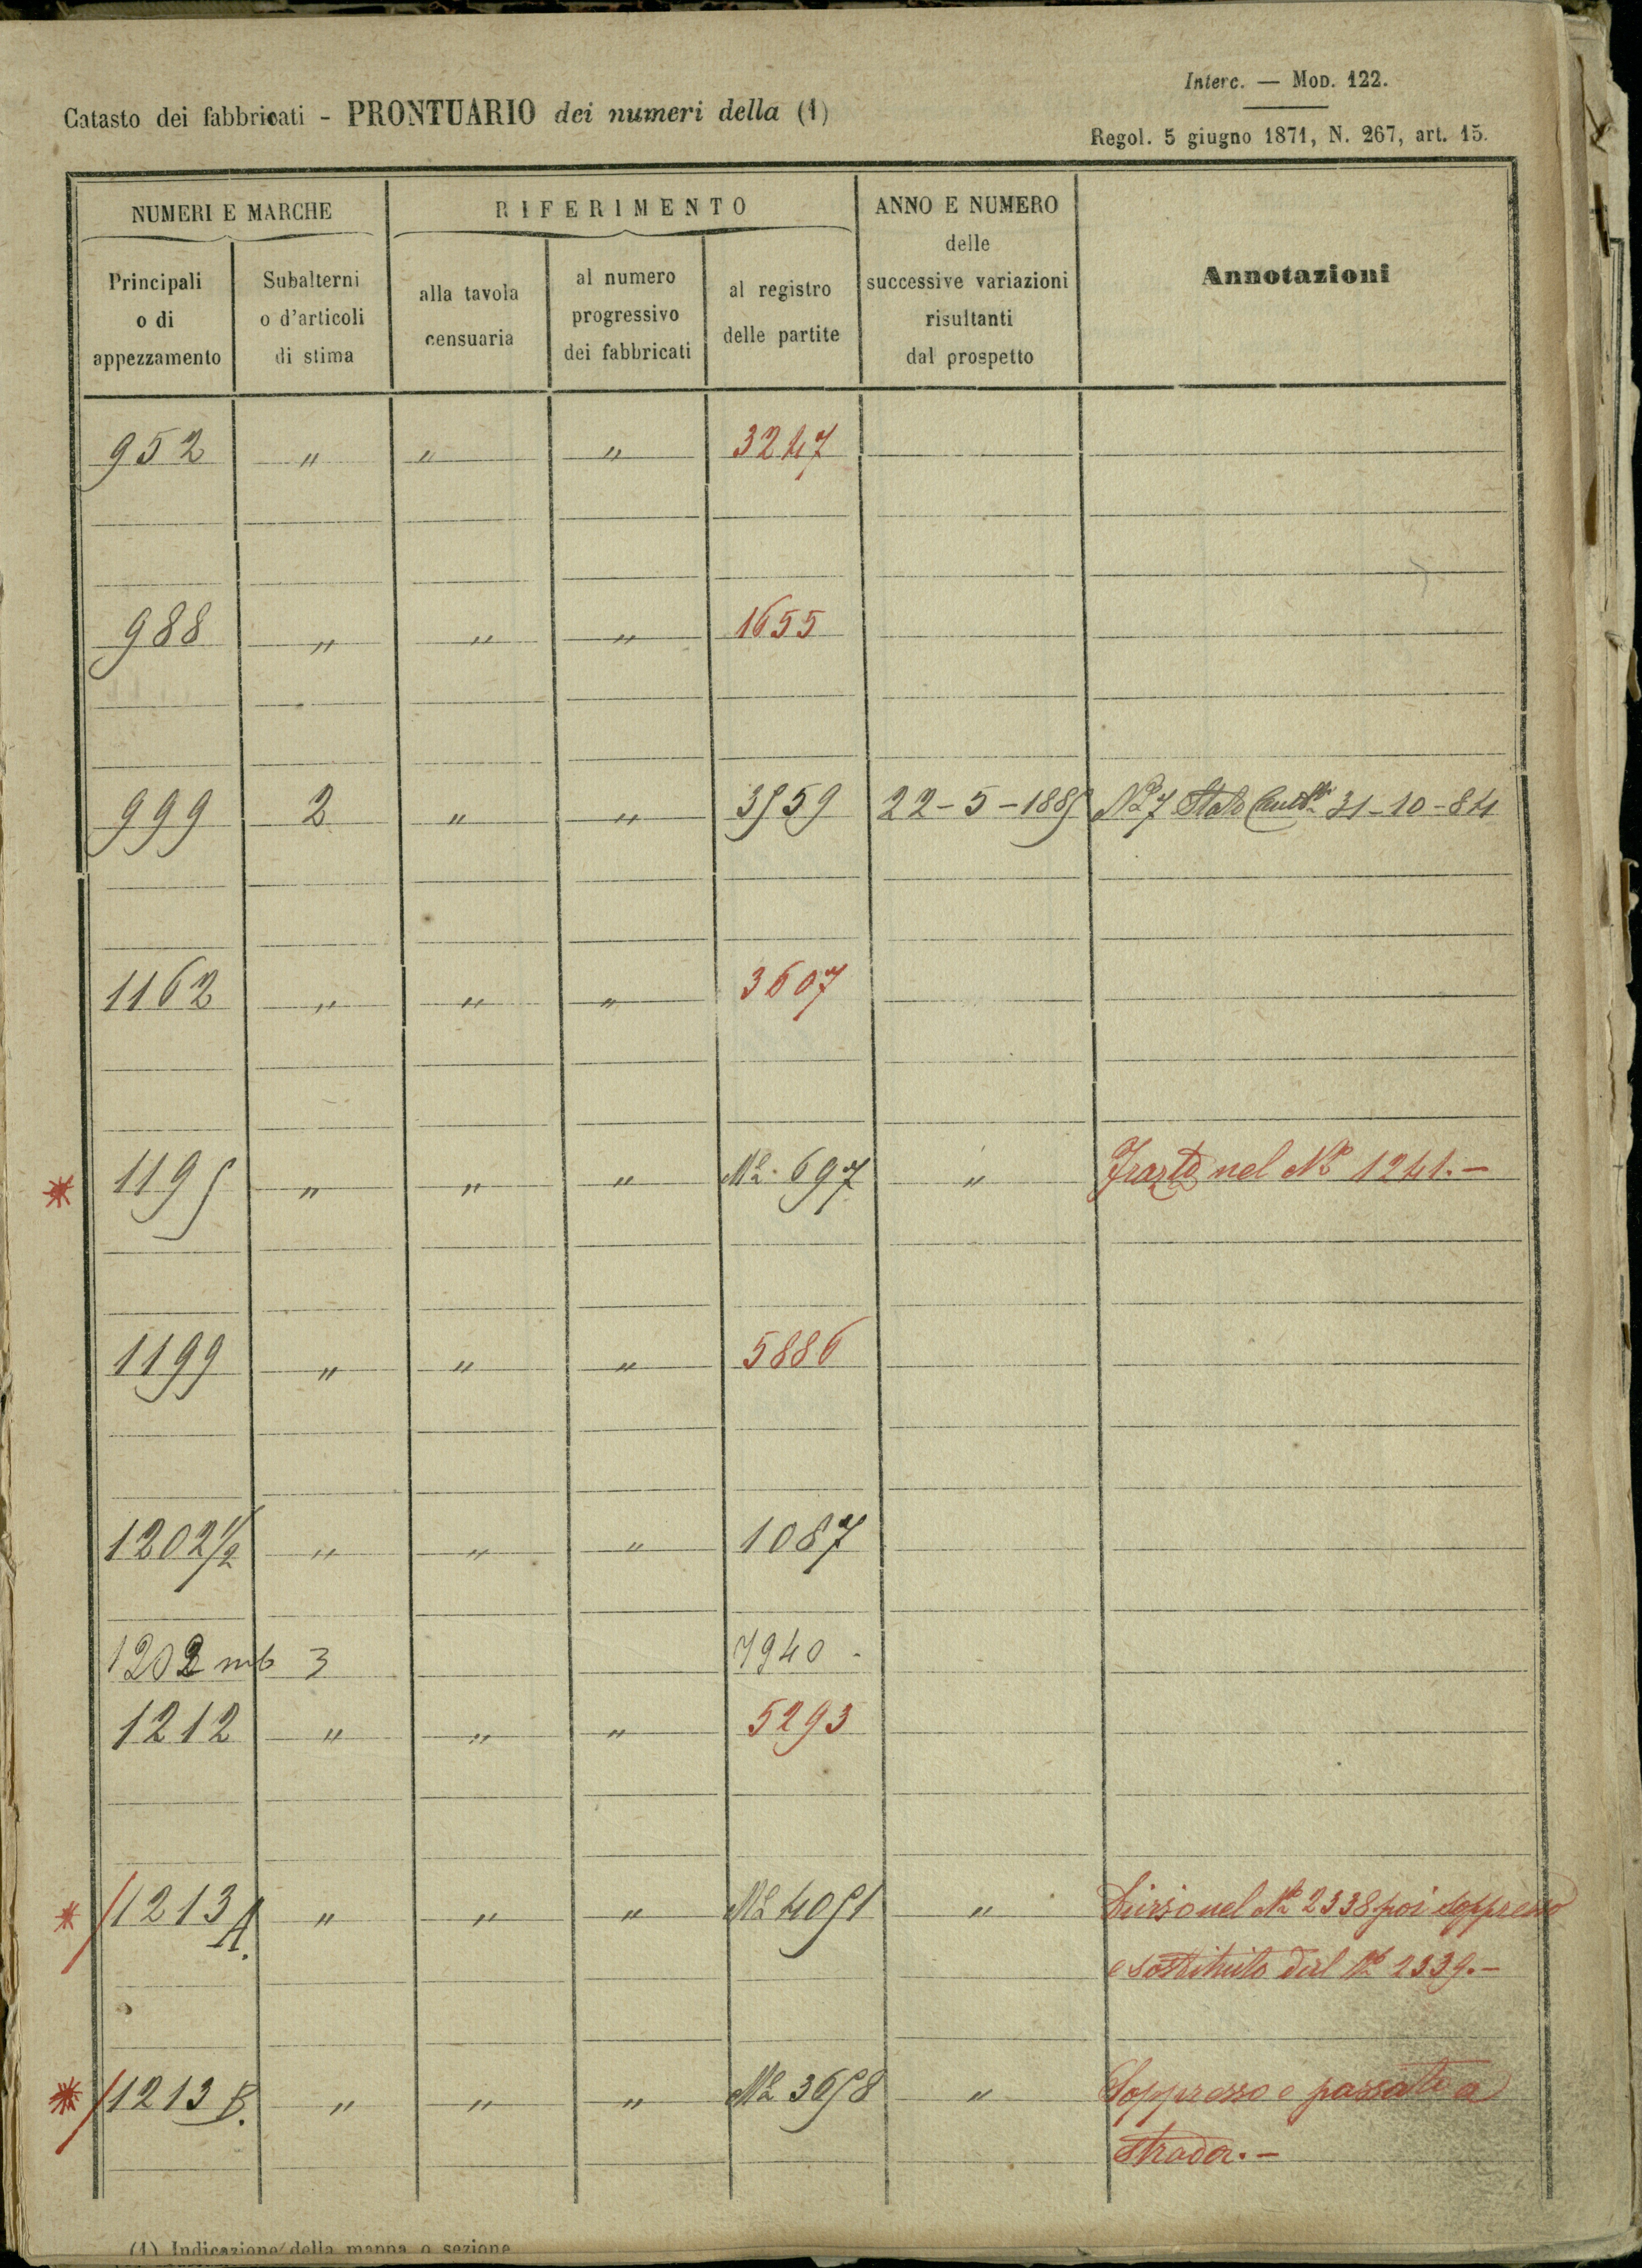 Interc. — Mod. 122.
Catasto dei fabbricati - PRONTUARIO dei numeri della (1)
Regol. 5 giugno 1871, N. 267, art. 15.
NUMERI E MARCHE RIFERIMENTO ANNO E NUMERO delle successive variazioni risultanti dal prospetto Annotazioni
Principali o di appezzamento Subalterni o d'articoli di stima alla tavola censuaria al numero progressivo dei fabbricati al registro delle partite
952 " " " 3247
988 " " " 1655
999 2 " " 3559 22-5-1885 N° 7 Stato 31-10-84
1162 " " " 3607
1195 " " " N° 697 " nel N° 1241.-
1199 " " " 5886
1202 1/2 " " " 1087
1202 3 7940
1212 " " " 5293
1213 A. " " " N° 4051 " nel N° 2338 poi soppresso
e sostituito dal N° 2339.-
1213 B. " " " N° 3658 " Soppresso e passato a
strada.-
(1) Indicazione della mappa o sezione